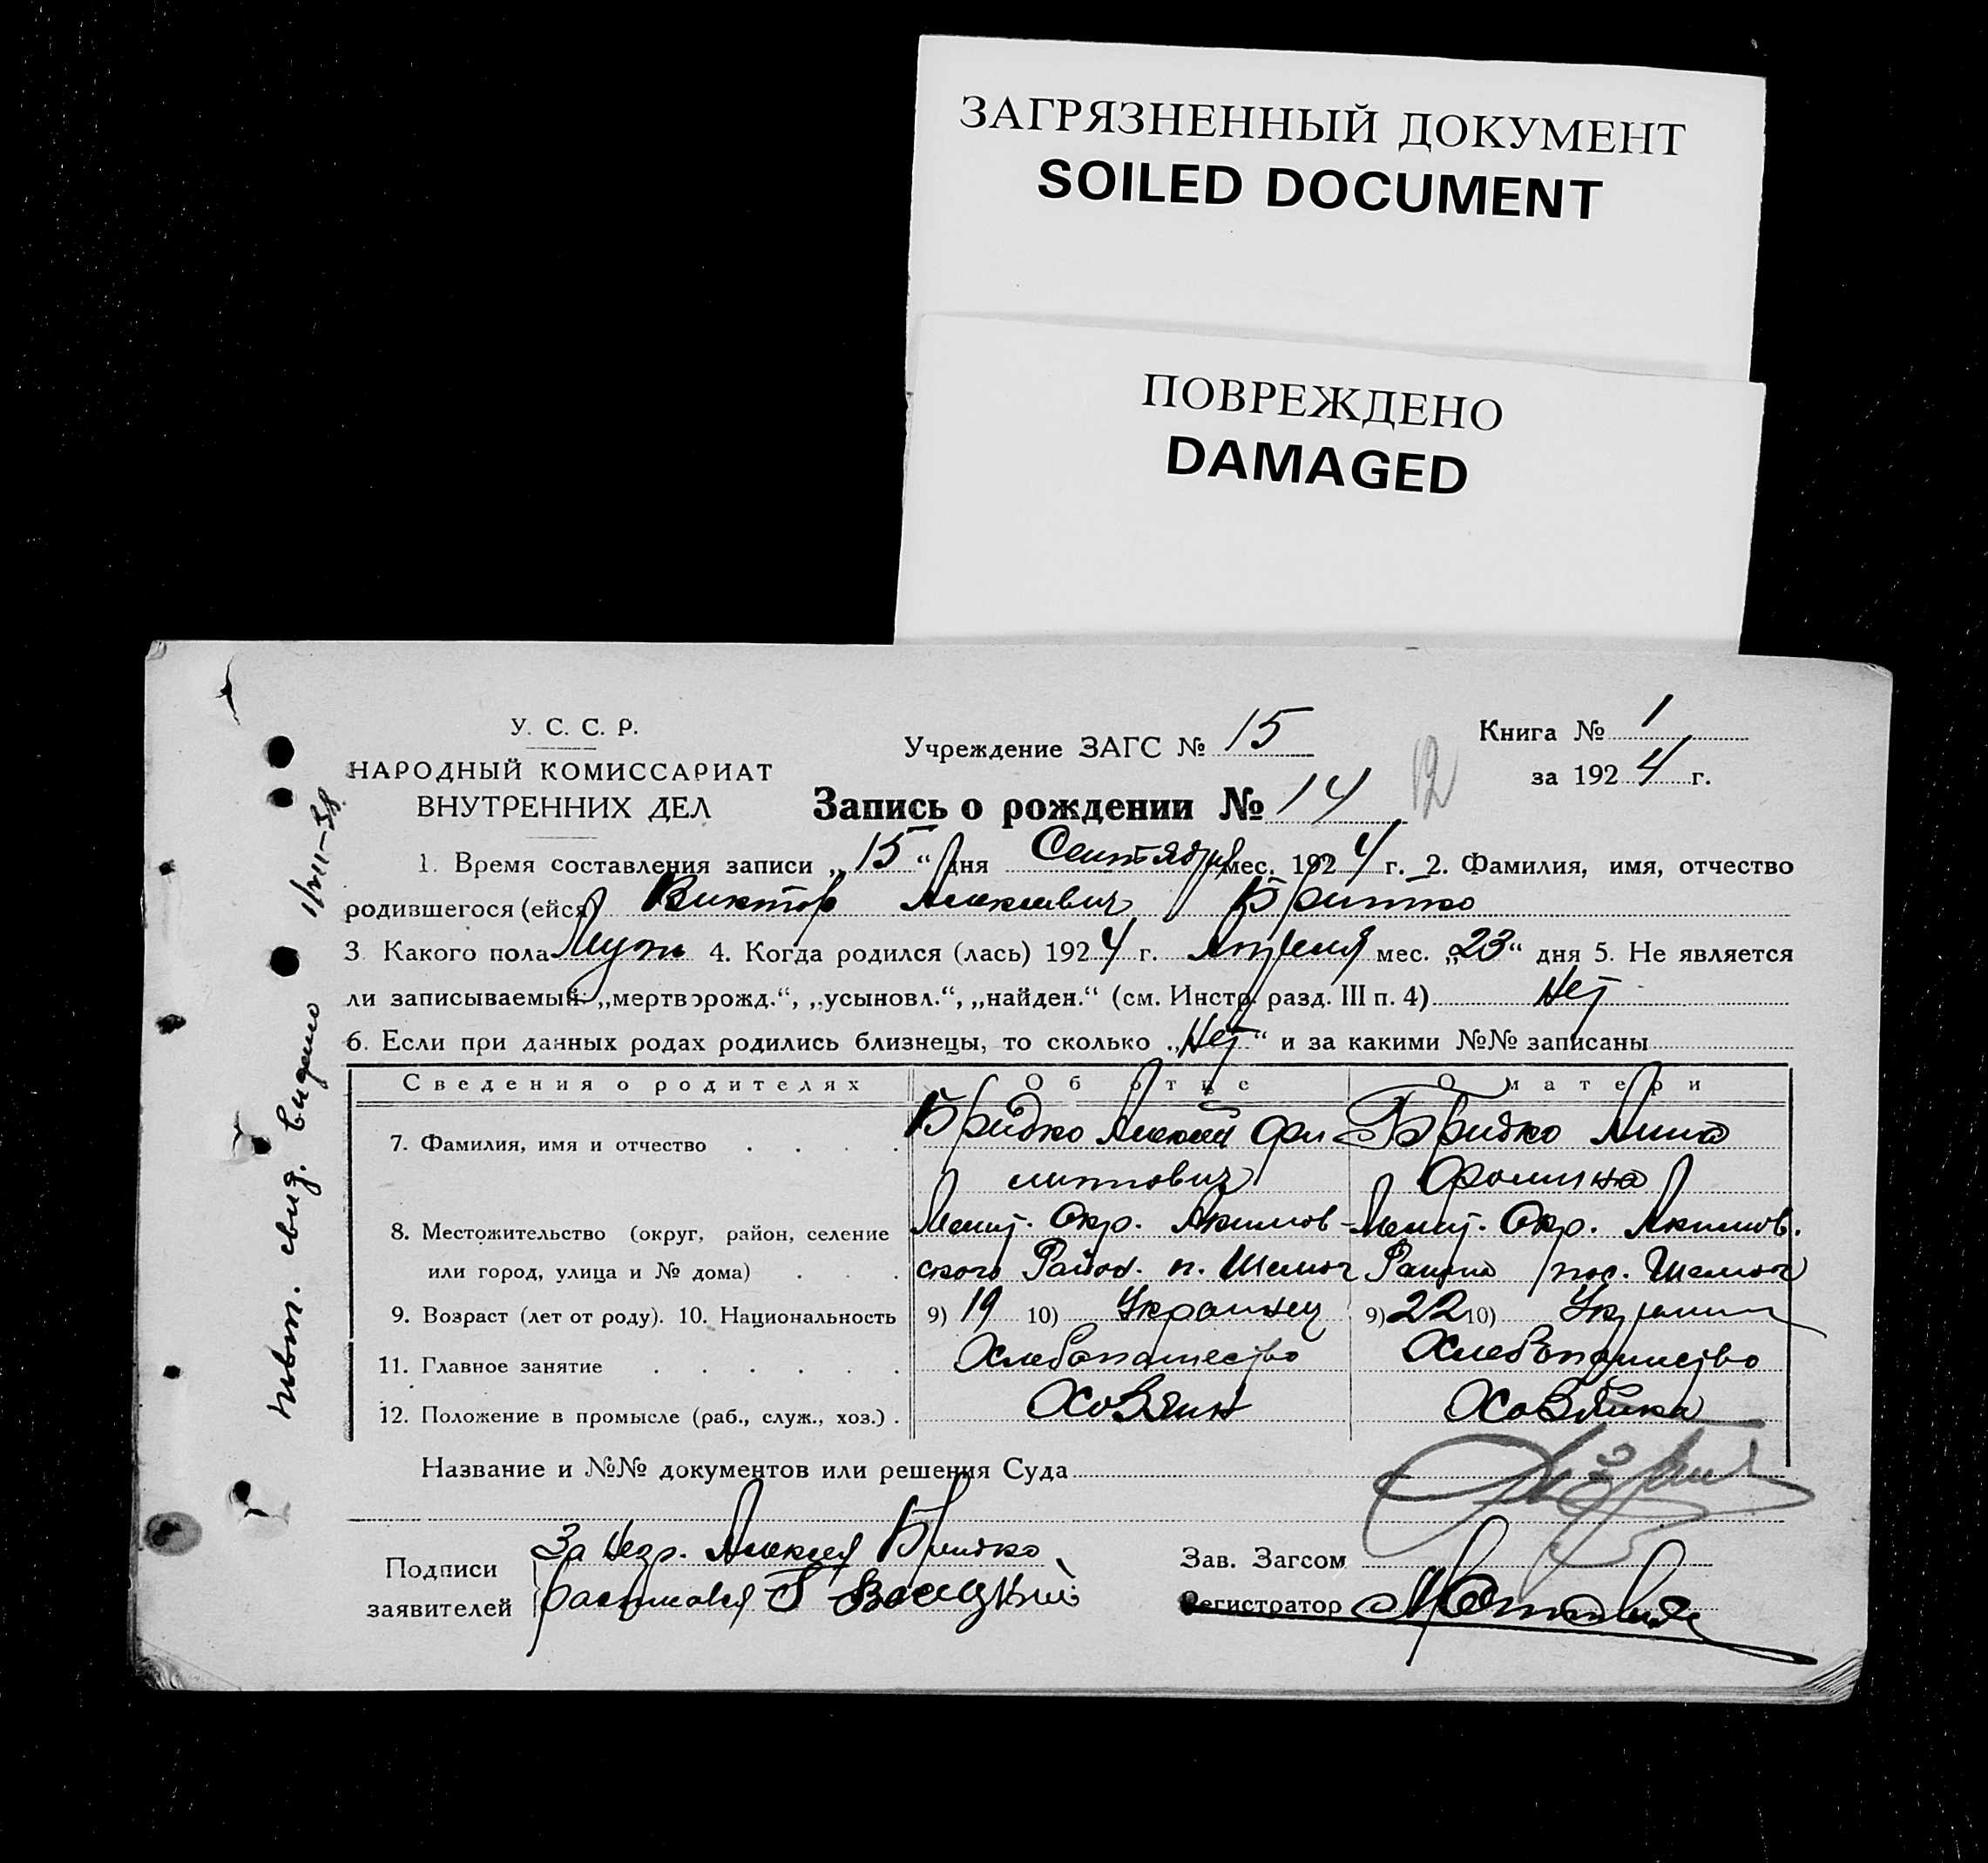 ЗАГРЯЗНЕННЫЙ ДОКУМЕНТ
SOILED DOCUMENT
ПОВРЕЖДЕНО
DAMAGED
У. С. С. Р.
НАРОДНЫЙ КОМИССАРИАТ
ВНУТРЕННИХ ДЕЛ
Учреждение ЗАГС № 15
Книга № 1
за 1924 г.
Запись о рождении № 14
12
1. Время составления записи „15“ дня Сентября мес. 1924 г. 2. Фамилия, имя, отчество
родившегося (ейся) Виктор Алексеевич Бритко
3. Какого пола Муж 4. Когда родился (лась) 1924 г. Апреля мес. „23“ дня 5. Не является
ли записываемый: „мертворожд.“, „усыновл.“, „найден.“ (см. Инстр. разд. III п. 4) Нет
6. Если при данных родах родились близнецы, то сколько „Нет“ и за какими №№ записаны
Сведения о родителях Об отце О матери
7. Фамилия, имя и отчество Бридко Алексей Фи- Бридко Анна
липпович Фомина
8. Местожительство (округ, район, селение Мелит. Окр. Акимов- Мелит. Окр. Акимов.
или город, улица и № дома) ского Район. п. Шелюг Района пос. Шелюг
9. Возраст (лет от роду). 10. Национальность 9) 19 10) Украинец 9) 22 10) Украин
11. Главное занятие Хлебопашество Хлебопашество
12. Положение в промысле (раб., служ., хоз.) Хозяин Хозяйка
Название и №№ документов или решения Суда
Подписи За негр. Алексея Бридко
заявителей расписался
Зав. Загсом
Регистратор
Повт. свид. видано 1/VIII-38